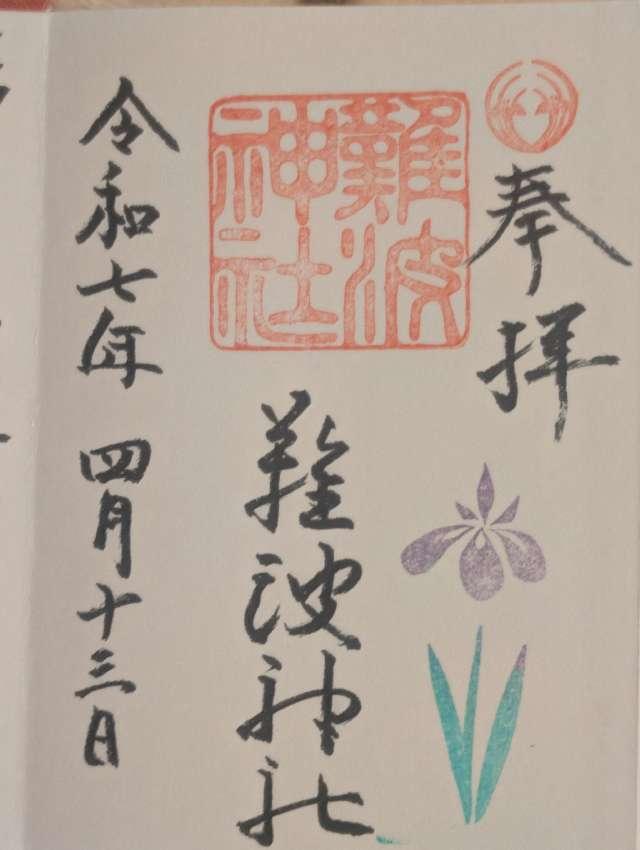 奉拝
難波神社
難波神社
令和七年 四月十三日